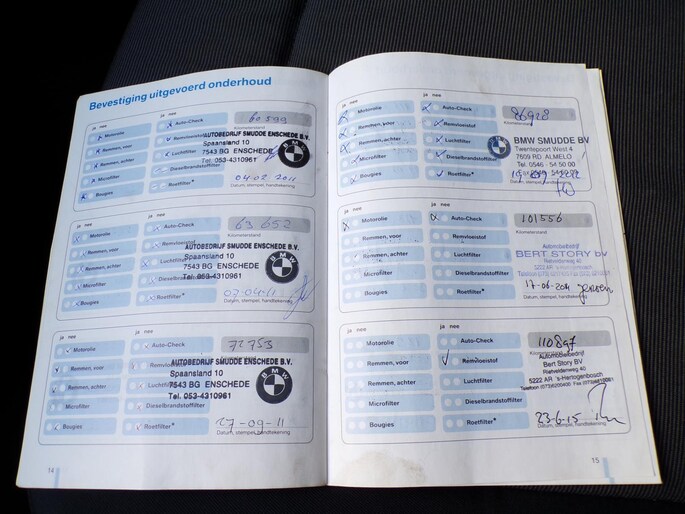 Bevestiging uitgevoerd onderhoud
ja nee ja nee
60 599
Kilometerstand
Motorolie Auto-Check
Remmen, voor Remvloeistof
Remmen, achter Luchtfilter
Microfilter Dieselbrandstoffilter
Bougies Roetfilter*
AUTOBEDRIJF SMUDDE ENSCHEDE B.V.
Spaansland 10
7543 BG ENSCHEDE
Tel. 053-4310961
BMW
04-02 2011
Datum, stempel, handtekening
ja nee ja nee
63 652
Kilometerstand
Motorolie Auto-Check
Remmen, voor Remvloeistof
Remmen, achter Luchtfilter
Microfilter Dieselbrandstoffilter
Bougies Roetfilter*
AUTOBEDRIJF SMUDDE ENSCHEDE B.V.
Spaansland 10
7543 BG ENSCHEDE
Tel. 053-4310961
BMW
Datum, stempel, handtekening
ja nee ja nee
72753
Kilometerstand
Motorolie Auto-Check
Remmen, voor Remvloeistof
Remmen, achter Luchtfilter
Microfilter Dieselbrandstoffilter
Bougies Roetfilter*
AUTOBEDRIJF SMUDDE ENSCHEDE B.V.
Spaansland 10
7543 BG ENSCHEDE
Tel. 053-4310961
BMW
27-09-11
Datum, stempel, handtekening
14
ja nee ja nee
86928
Kilometerstand
Motorolie Auto-Check
Remmen, voor Remvloeistof
Remmen, achter Luchtfilter
Microfilter Dieselbrandstoffilter
Bougies Roetfilter*
BMW SMUDDE BV
Twentepoort West 4
7609 RD ALMELO
Tel. 0546 - 54 50 00
Datum, stempel, handtekening
ja nee ja nee
101556
Kilometerstand
Motorolie Auto-Check
Remmen, voor Remvloeistof
Remmen, achter Luchtfilter
Microfilter Dieselbrandstoffilter
Bougies Roetfilter*
Automobielbedrijf
BERT STORY bv
Rietveldenweg 40
Datum, stempel, handtekening
ja nee ja nee
Kilometerstand
Motorolie Auto-Check
Remmen, voor Remvloeistof
Remmen, achter Luchtfilter
Microfilter Dieselbrandstoffilter
Bougies Roetfilter*
Automobielbedrijf
Bert Story BV
Rietveldenweg 40
5222 AR 's-Hertogenbosch
23-6-15
Datum, stempel, handtekening
15